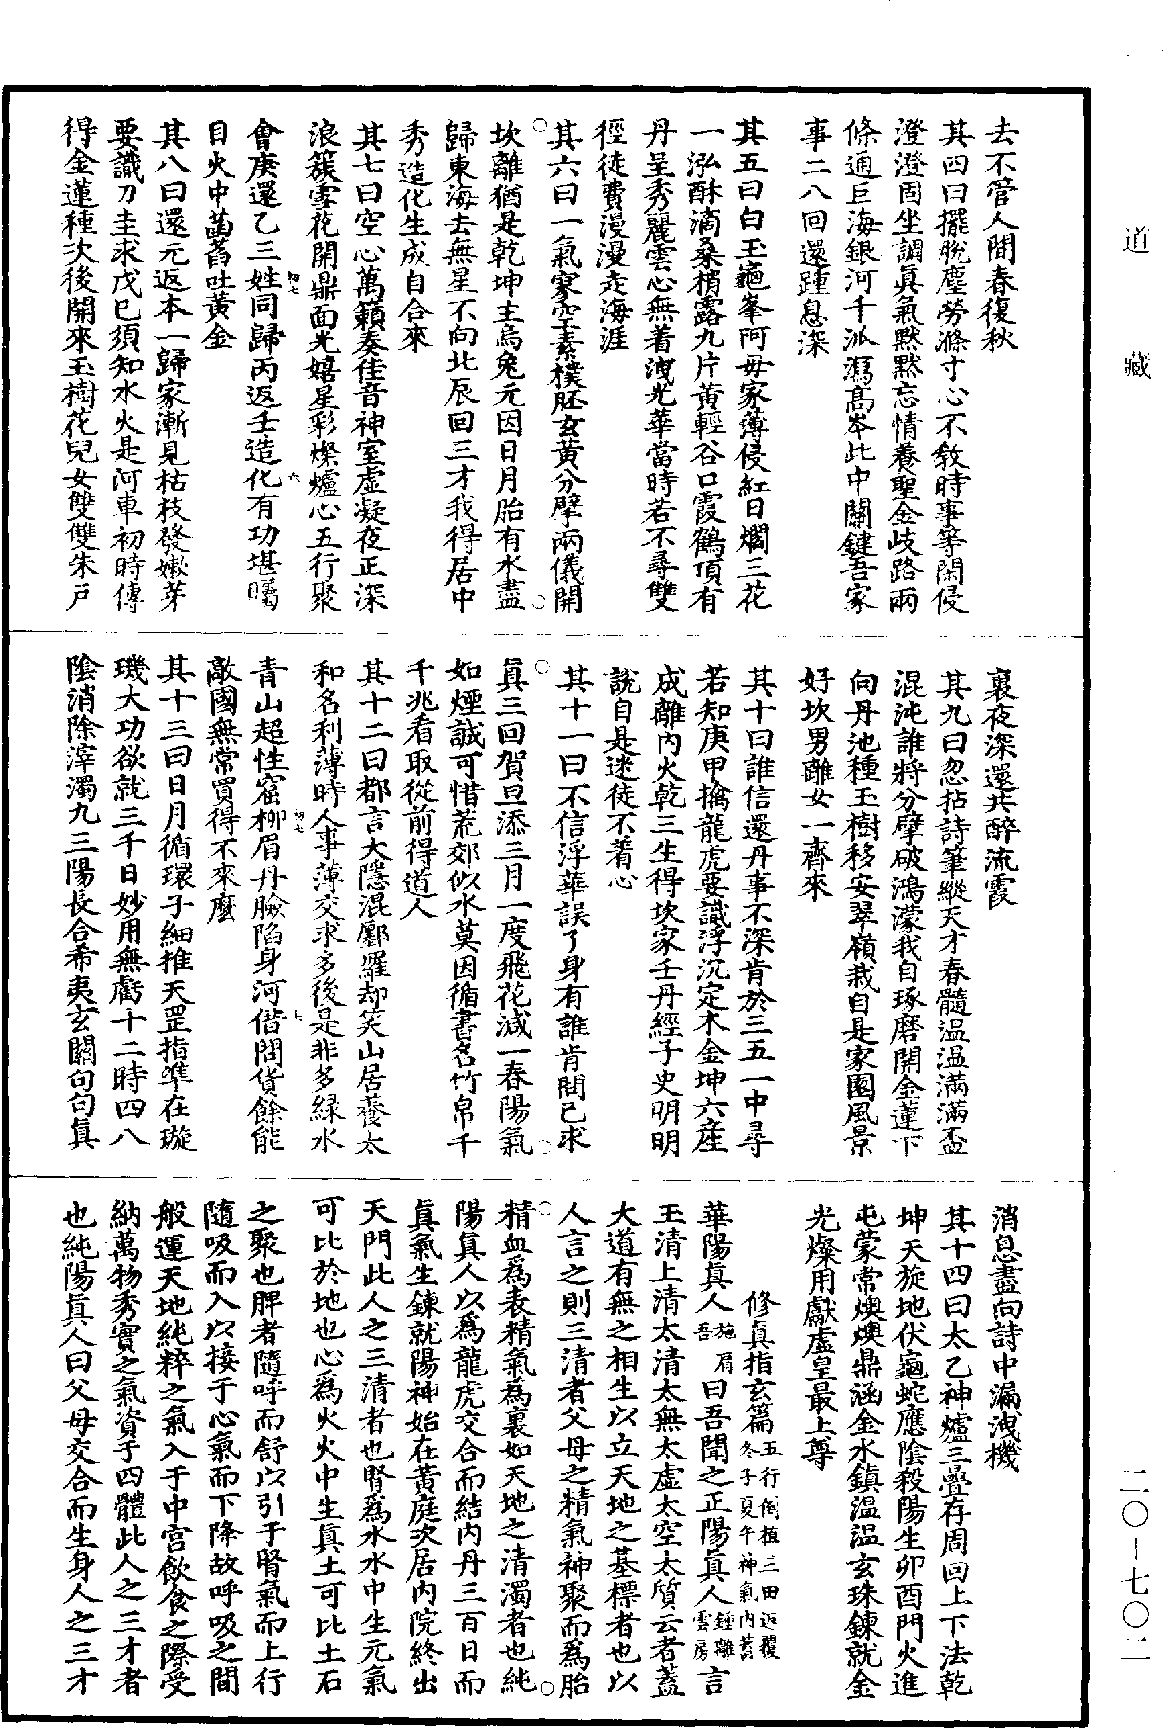 道藏
去不管人間春復秋
其四曰擺脫塵勞滌寸心不敎時事等閑侵
澄澄固坐調眞氣默默忘情養聖金歧路兩
條通巨海銀河千派瀉高岑此中關鍵吾家
事二八回還踵息深
其五曰白玉龜峯阿母家薄侵紅日爛三花
一泓酥滴桑梢露九片黃輕谷口霞鶴頂有
丹呈秀麗雲心無着洩光華當時若不尋雙
徑徒費漫漫走海涯
其六曰一氣寥空素樸胚玄黃分擘兩儀開
坎離猶是乾坤主烏兔元因日月胎有水盡
歸東海去無星不向北辰回三才我得居中
秀造化生成自合來
其七曰空心萬籟奏佳音神室虛凝夜正深
浪簇雪花開鼎面光嬉星彩燦爐心五行聚
會庚還乙三姓同歸丙返壬造化有功堪矚
目火中菡萏吐黃金
其八曰還元返本一歸家漸見枯枝發嫩芽
要識刀圭求戊己須知水火是河車初時傳
得金蓮種次後開來玉樹花兒女雙雙朱戶
裏夜深還共醉流霞
其九曰忽拈詩筆縱天才春髓溫溫滿滿盃
混沌誰將分擘破鴻濛我自琢磨開金蓮下
向丹池種玉樹移安翠嶺栽自是家園風景
好坎男離女一齊來
其十曰誰信還丹事不深肯於三五一中尋
若知庚甲擒龍虎要識浮沉定木金坤六產
成離內火乾三生得坎家壬丹經子史明明
說自是迷徒不着心
其十一曰不信浮華誤了身有誰肯問已求
眞三回賀旦添三月一度飛花減一春陽氣
如煙誠可惜荒郊似水莫因循書名竹帛千
千兆看取從前得道人
其十二曰都言大隱混鄽羅却笑山居養太
和名利薄時人事薄交求多後是非多綠水
青山超性窟柳眉丹臉陷身河借問貨餘能
敵國無常買得不來麼
其十三曰日月循環子細推天罡指準在璇
璣大功欲就三千日妙用無虧十二時四八
陰消除滓濁九三陽長合希夷玄關句句眞
消息盡向詩中漏洩機
其十四曰太乙神爐三疊存周回上下法乾
坤天旋地伏龜蛇應陰殺陽生卯酉門火進
屯蒙常燠燠鼎涵金水鎮溫溫玄珠鍊就金
光燦用獻虛皇最上尊
修眞指玄篇五行倒植三田返覆冬子夏午神氣內蓄
華陽眞人施肩吾曰吾聞之正陽眞人鍾離雲房言
玉清上清太清太無太虛太空太質云者蓋
大道有無之相生以立天地之基標者也以
人言之則三清者父母之精氣神聚而爲胎
精血爲表精氣爲裏如天地之清濁者也純
陽眞人以爲龍虎交合而結內丹三百日而
眞氣生鍊就陽神始在黃庭次居內院終出
天門此人之三清者也腎爲水水中生元氣
可比於地也心爲火火中生眞土可比土石
之聚也脾者隨呼而舒以引于腎氣而上行
隨吸而入以接于心氣而下降故呼吸之間
般運天地純粹之氣入于中宮飲食之際受
納萬物秀實之氣資于四體此人之三才者
也純陽眞人曰父母交合而生身人之三才
二〇－七〇二